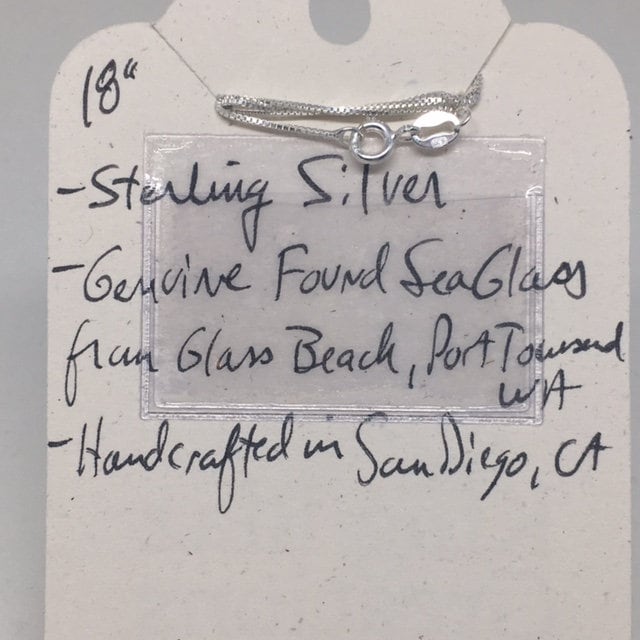 18"
- Sterling Silver
- Genuine Found SeaGlass
from Glass Beach, Port Townsend
WA
- Handcrafted in San Diego, CA